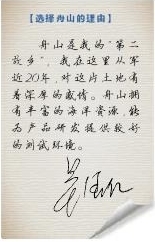 【选择舟山的理由】
舟山是我的“第二
故乡”，我在这里从军
近20年，对这片土地有
着深厚的感情。舟山拥
有丰富的海洋资源，能
为产品研发提供较好
的测试环境。